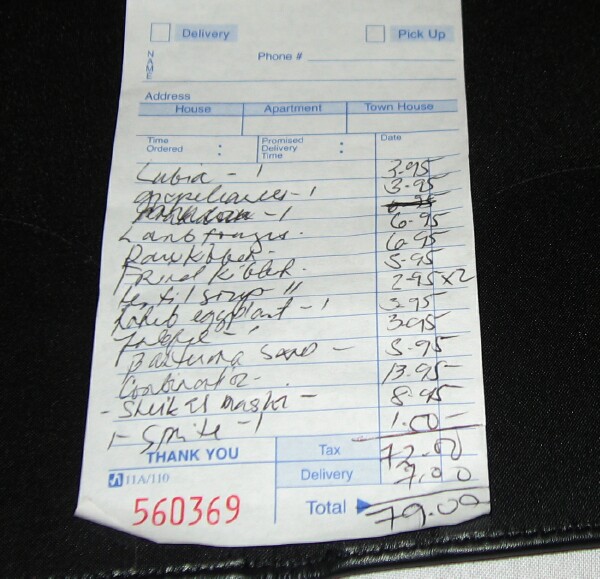 Delivery Pick Up
NAME
Phone #
Address
House Apartment Town House
Time Ordered : Promised Delivery Time : Date
Lubia - 1 3.95
grapeleaves - 1 3.95
- 1
Lamb 6.95
Raw Kibbeh - 6.95
Fried Kibbeh. 5.95
Lentil Soup " 2.95 x2
eggplant - 1 3.95
- 1 3.95
Basturma Sand - 3.95
Combination - 13.95
- Sheik El - 8.95
1- Sprite - 1 1.00 -
THANK YOU Tax 72.00
11A/110 Delivery 7.00
560369 Total 79.00